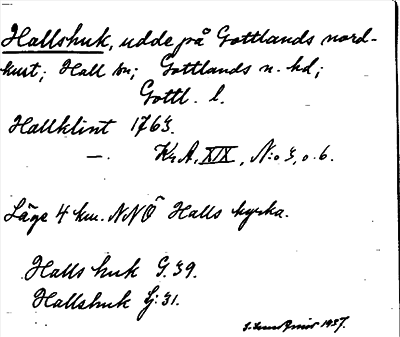 Hallshuk, udde på Gottlands nord-
kust; Hall sn; Gottlands n. hd;
Gottl. l.
Hallklint 1763.
—. Kr A, XIX, N:o 3, o. 6.
Läge 4 km. NNÖ Halls kyrka.
Halls huk G. 39.
Hallshuk Lj: 31.
1937.